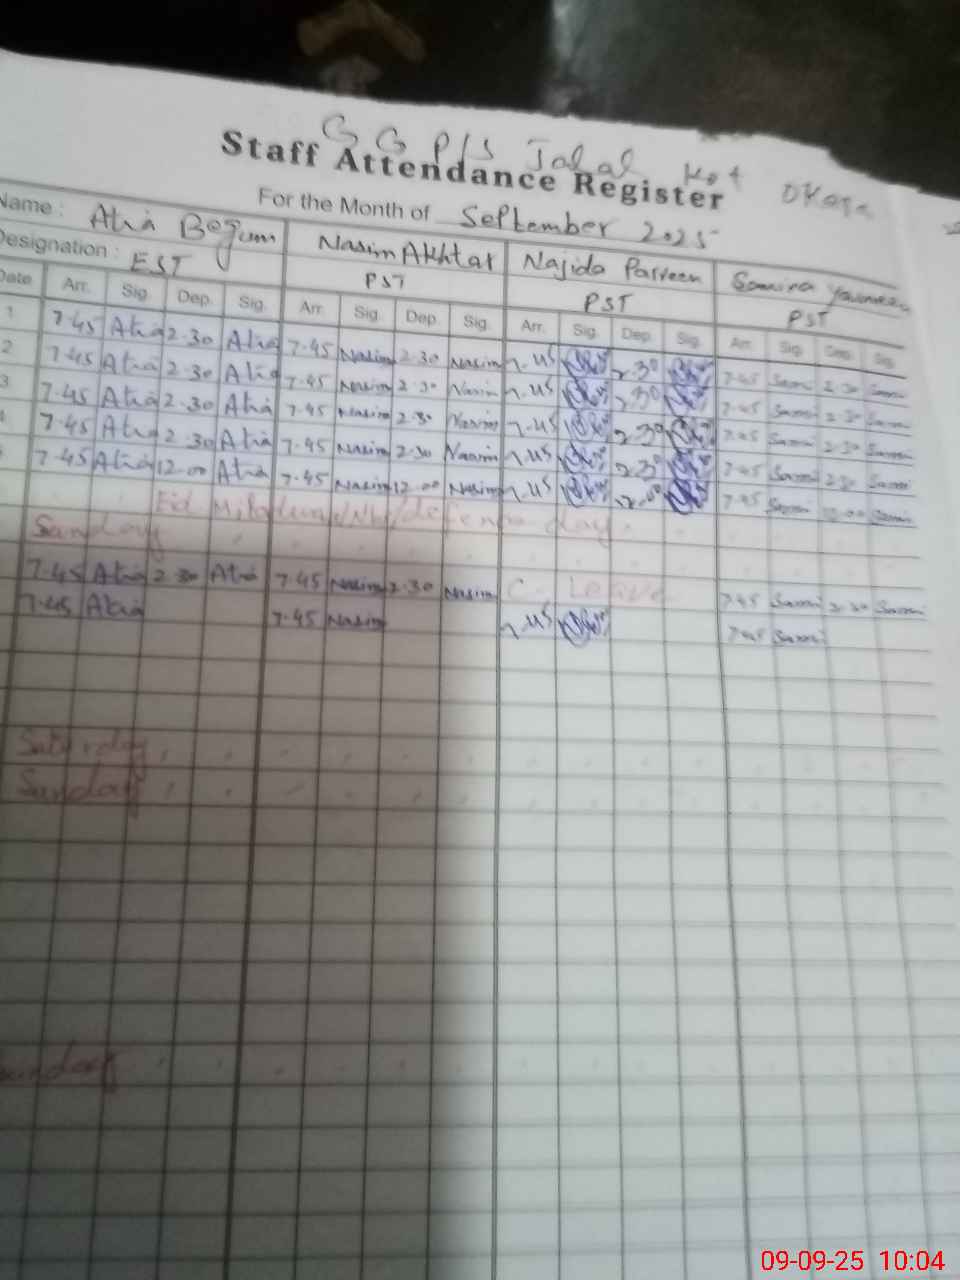 G G P/S Jalal Kot Okara
Staff Attendance Register
For the Month of September 2025
Name: Atia Begum Nasim Akhtar Najida Parveen Samina
Designation: EST PST PST PST
Date Arr. Sig. Dep. Sig. Arr. Sig. Dep. Sig. Arr. Sig. Dep. Sig. Arr. Sig. Dep. Sig.
1 7.45 Atia 2.30 Atia 7.45 Nasim 2.30 Nasim 7.45 2.30 7.45 Sami 2.30 Sami
2 7.45 Atia 2.30 Atia 7.45 Nasim 2.30 Nasim 7.45 2.30 7.45 Sami 2.30 Sami
3 7.45 Atia 2.30 Atia 7.45 Nasim 2.30 Nasim 7.45 2.30 7.45 Sami 2.30 Sami
7.45 Atia 2.30 Atia 7.45 Nasim 2.30 Nasim 7.45 2.30 7.45 Sami 2.30 Sami
7.45 Atia 12.00 Atia 7.45 Nasim 12.00 Nasim 7.45 12.00 7.45 Sami 12.00 Sami
Eid defence day.
Sunday
7.45 Atia 2.30 Atia 7.45 Nasim 2.30 Nasim C. Leave 7.45 Sami 2.30 Sami
7.45 Atia 7.45 Nasim 7.45 7.45 Sami
Saturday
Sunday
Sunday
09-09-25 10:04